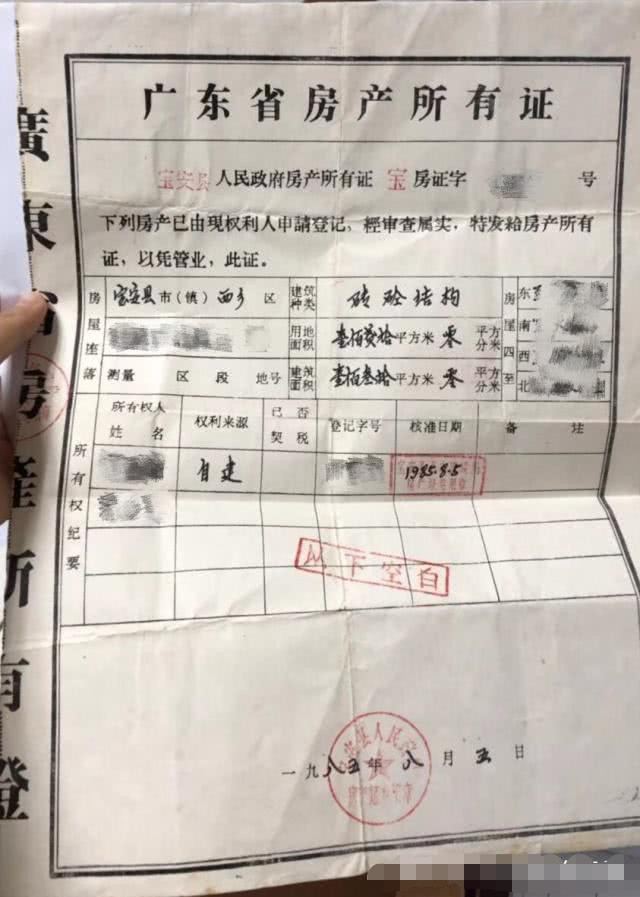 廣東省房產所有證
广东省房产所有证
宝安县人民政府房产所有证 宝 房证字 号
下列房产已由现权利人申請登记，經审查属实，特发給房产所有
证，以凭管业，此证。
房屋座落 宝安县市(镇)西乡 区 建筑种类 砖砼结构 房屋四至 东
用地面积 壹佰贰拾平方米 零 平方分米 南
西
测量 区 段 地号 建筑面积 壹佰叁拾平方米 零 平方分米 北
所有权纪要 所有权人姓名 权利来源 已否契税 登记字号 核准日期 备 注
自建 1985.8.5
以下空白
一九八五年八月五日